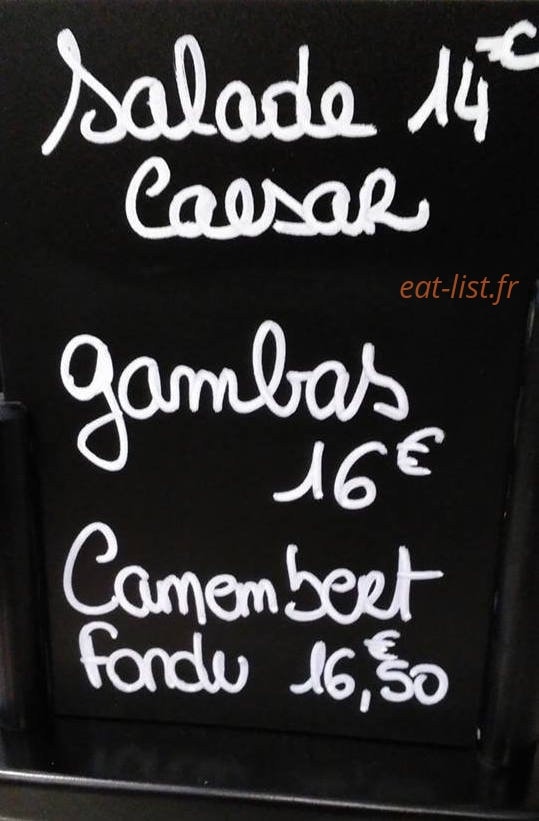 Salade 14€
Caesar
eat-list.fr
gambas
16€
Camembert
fondu 16,€50